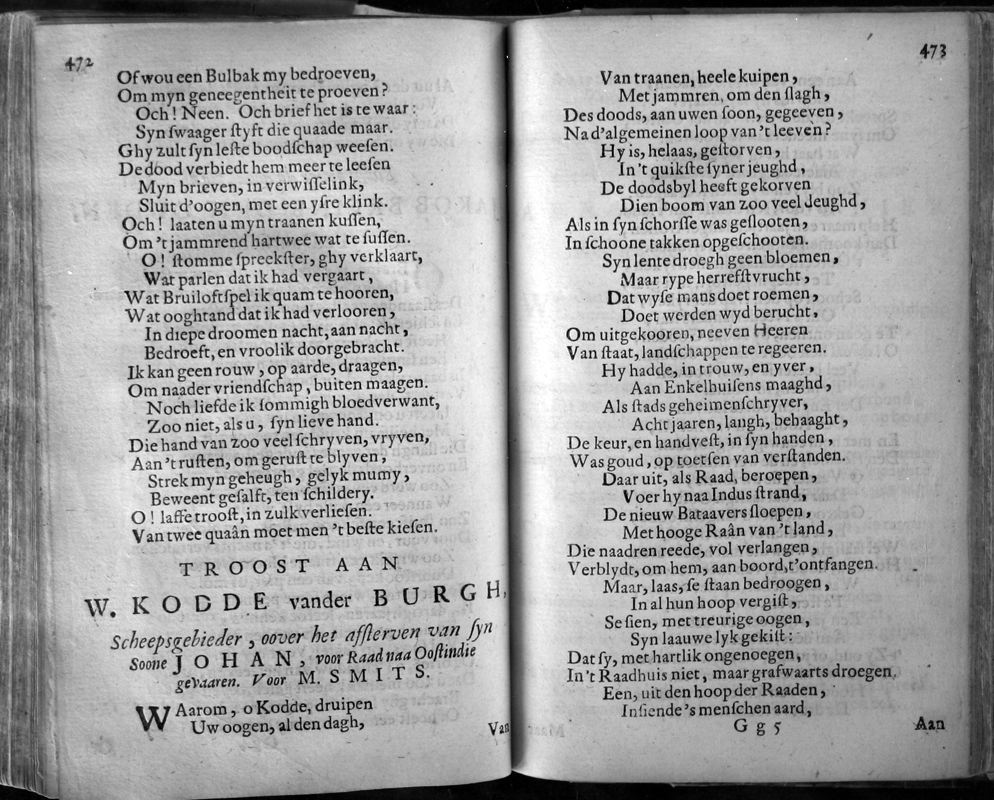 472
Of wou een Bulbak my bedroeven,
Om myn geneegentheit te proeven?
Och! Neen. Och brief het is te waar:
Syn ſwaager ſtyft die quaade maar.
Ghy zult ſyn leſte boodſchap weeſen.
De dood verbiedt hem meer te leeſen
Myn brieven, in verwiſſelink,
Sluit d'oogen, met een yſre klink.
Och! laaten u myn traanen kuſſen,
Om 't jammrend hartwee wat te ſuſſen.
O! ſtomme ſpreekſter, ghy verklaart,
Wat parlen dat ik had vergaart,
Wat Bruiloftſpel ik quam te hooren,
Wat ooghtand dat ik had verlooren,
In diepe droomen nacht, aan nacht,
Bedroeft, en vroolik doorgebracht.
Ik kan geen rouw, op aarde, draagen,
Om naader vriendſchap, buiten maagen.
Noch liefde ik ſommigh bloedverwant,
Zoo niet, als u, ſyn lieve hand.
Die hand van zoo veel ſchryven, vryven,
Aan 't ruſten, om geruſt te blyven,
Strek myn geheugh, gelyk mumy,
Beweent geſalft, ten ſchildery.
O! laffe trooſt, in zulk verlieſen.
Van twee quaân moet men 't beſte kieſen.
TROOST AAN
W. KODDE vander BURGH,
Scheepsgebieder, oover het afſterven van ſyn
Soone JOHAN, voor Raad naa Ooſtindie
gevaaren. Voor M. SMITS.
WAarom, o Kodde, druipen
Uw oogen, al den dagh,
Van
473
Van traanen, heele kuipen,
Met jammren, om den ſlagh,
Des doods, aan uwen ſoon, gegeeven,
Na d'algemeinen loop van 't leeven?
Hy is, helaas, geſtorven,
In 't quikſte ſyner jeughd,
De doodsbyl heeft gekorven
Dien boom van zoo veel Jeughd,
Als in ſyn ſchorſſe was geſlooten,
In ſchoone takken opgeſchooten.
Syn lente droegh geen bloemen,
Maar rype herrefſtvrucht,
Dat wyſe mans doet roemen,
Doet werden wyd berucht,
Om uitgekooren, neeven Heeren
Van ſtaat, landſchappen te regeeren.
Hy hadde, in trouw, en yver,
Aan Enkelhuiſens maaghd,
Als ſtads geheimenſchryver,
Acht jaaren, langh, behaaght,
De keur, en handveſt, in ſyn handen,
Was goud, op toetſen van verſtanden.
Daar uit, als Raad, beroepen,
Voer hy naa Indus ſtrand,
De nieuw Bataavers ſloepen,
Met hooge Raân van 't land,
Die naadren reede, vol verlangen,
Verblydt, om hem, aan boord, t'ontfangen.
Maar, laas, ſe ſtaan bedroogen,
In al hun hoop vergiſt,
Se ſien, met treurige oogen,
Syn laauwe lyk gekiſt:
Dat ſy, met hartlik ongenoegen,
In 't Raadhuis niet, maar grafwaarts droegen.
Een, uit den hoop der Raaden,
Inſiende 's menſchen aard,
Gg 5
Aan